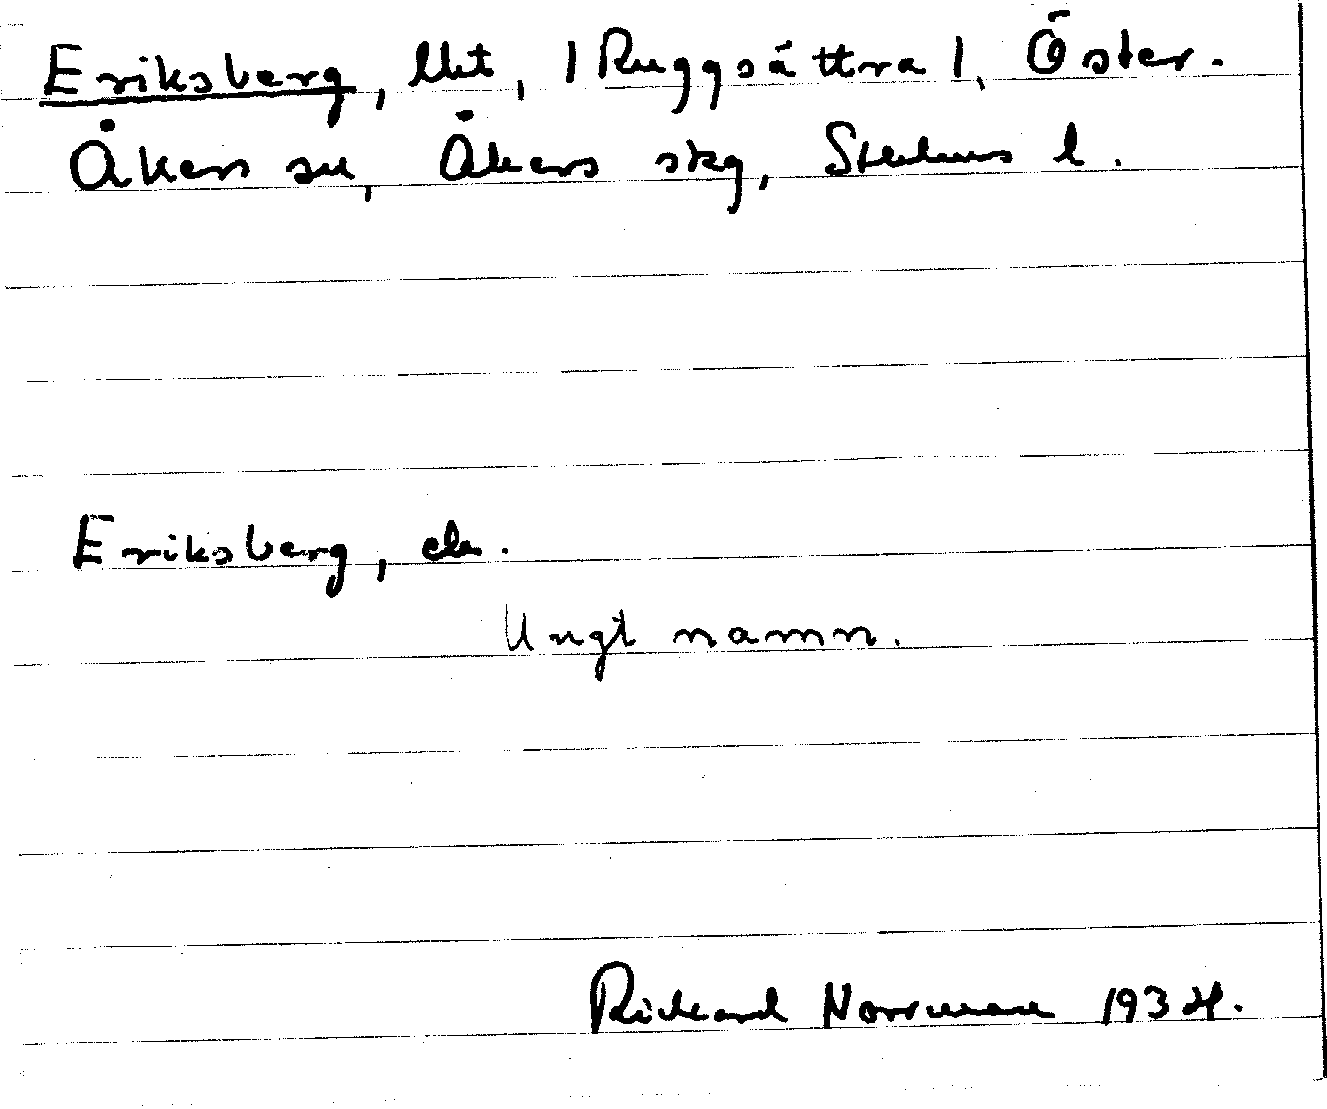 Eriksberg, lht, 1 Ruggsättra 1, Öster-
Åkers sn, Åkers skg, Sthlms l.
Eriksberg, ds.
Ungt namn.
Rickard Norrman 1934.